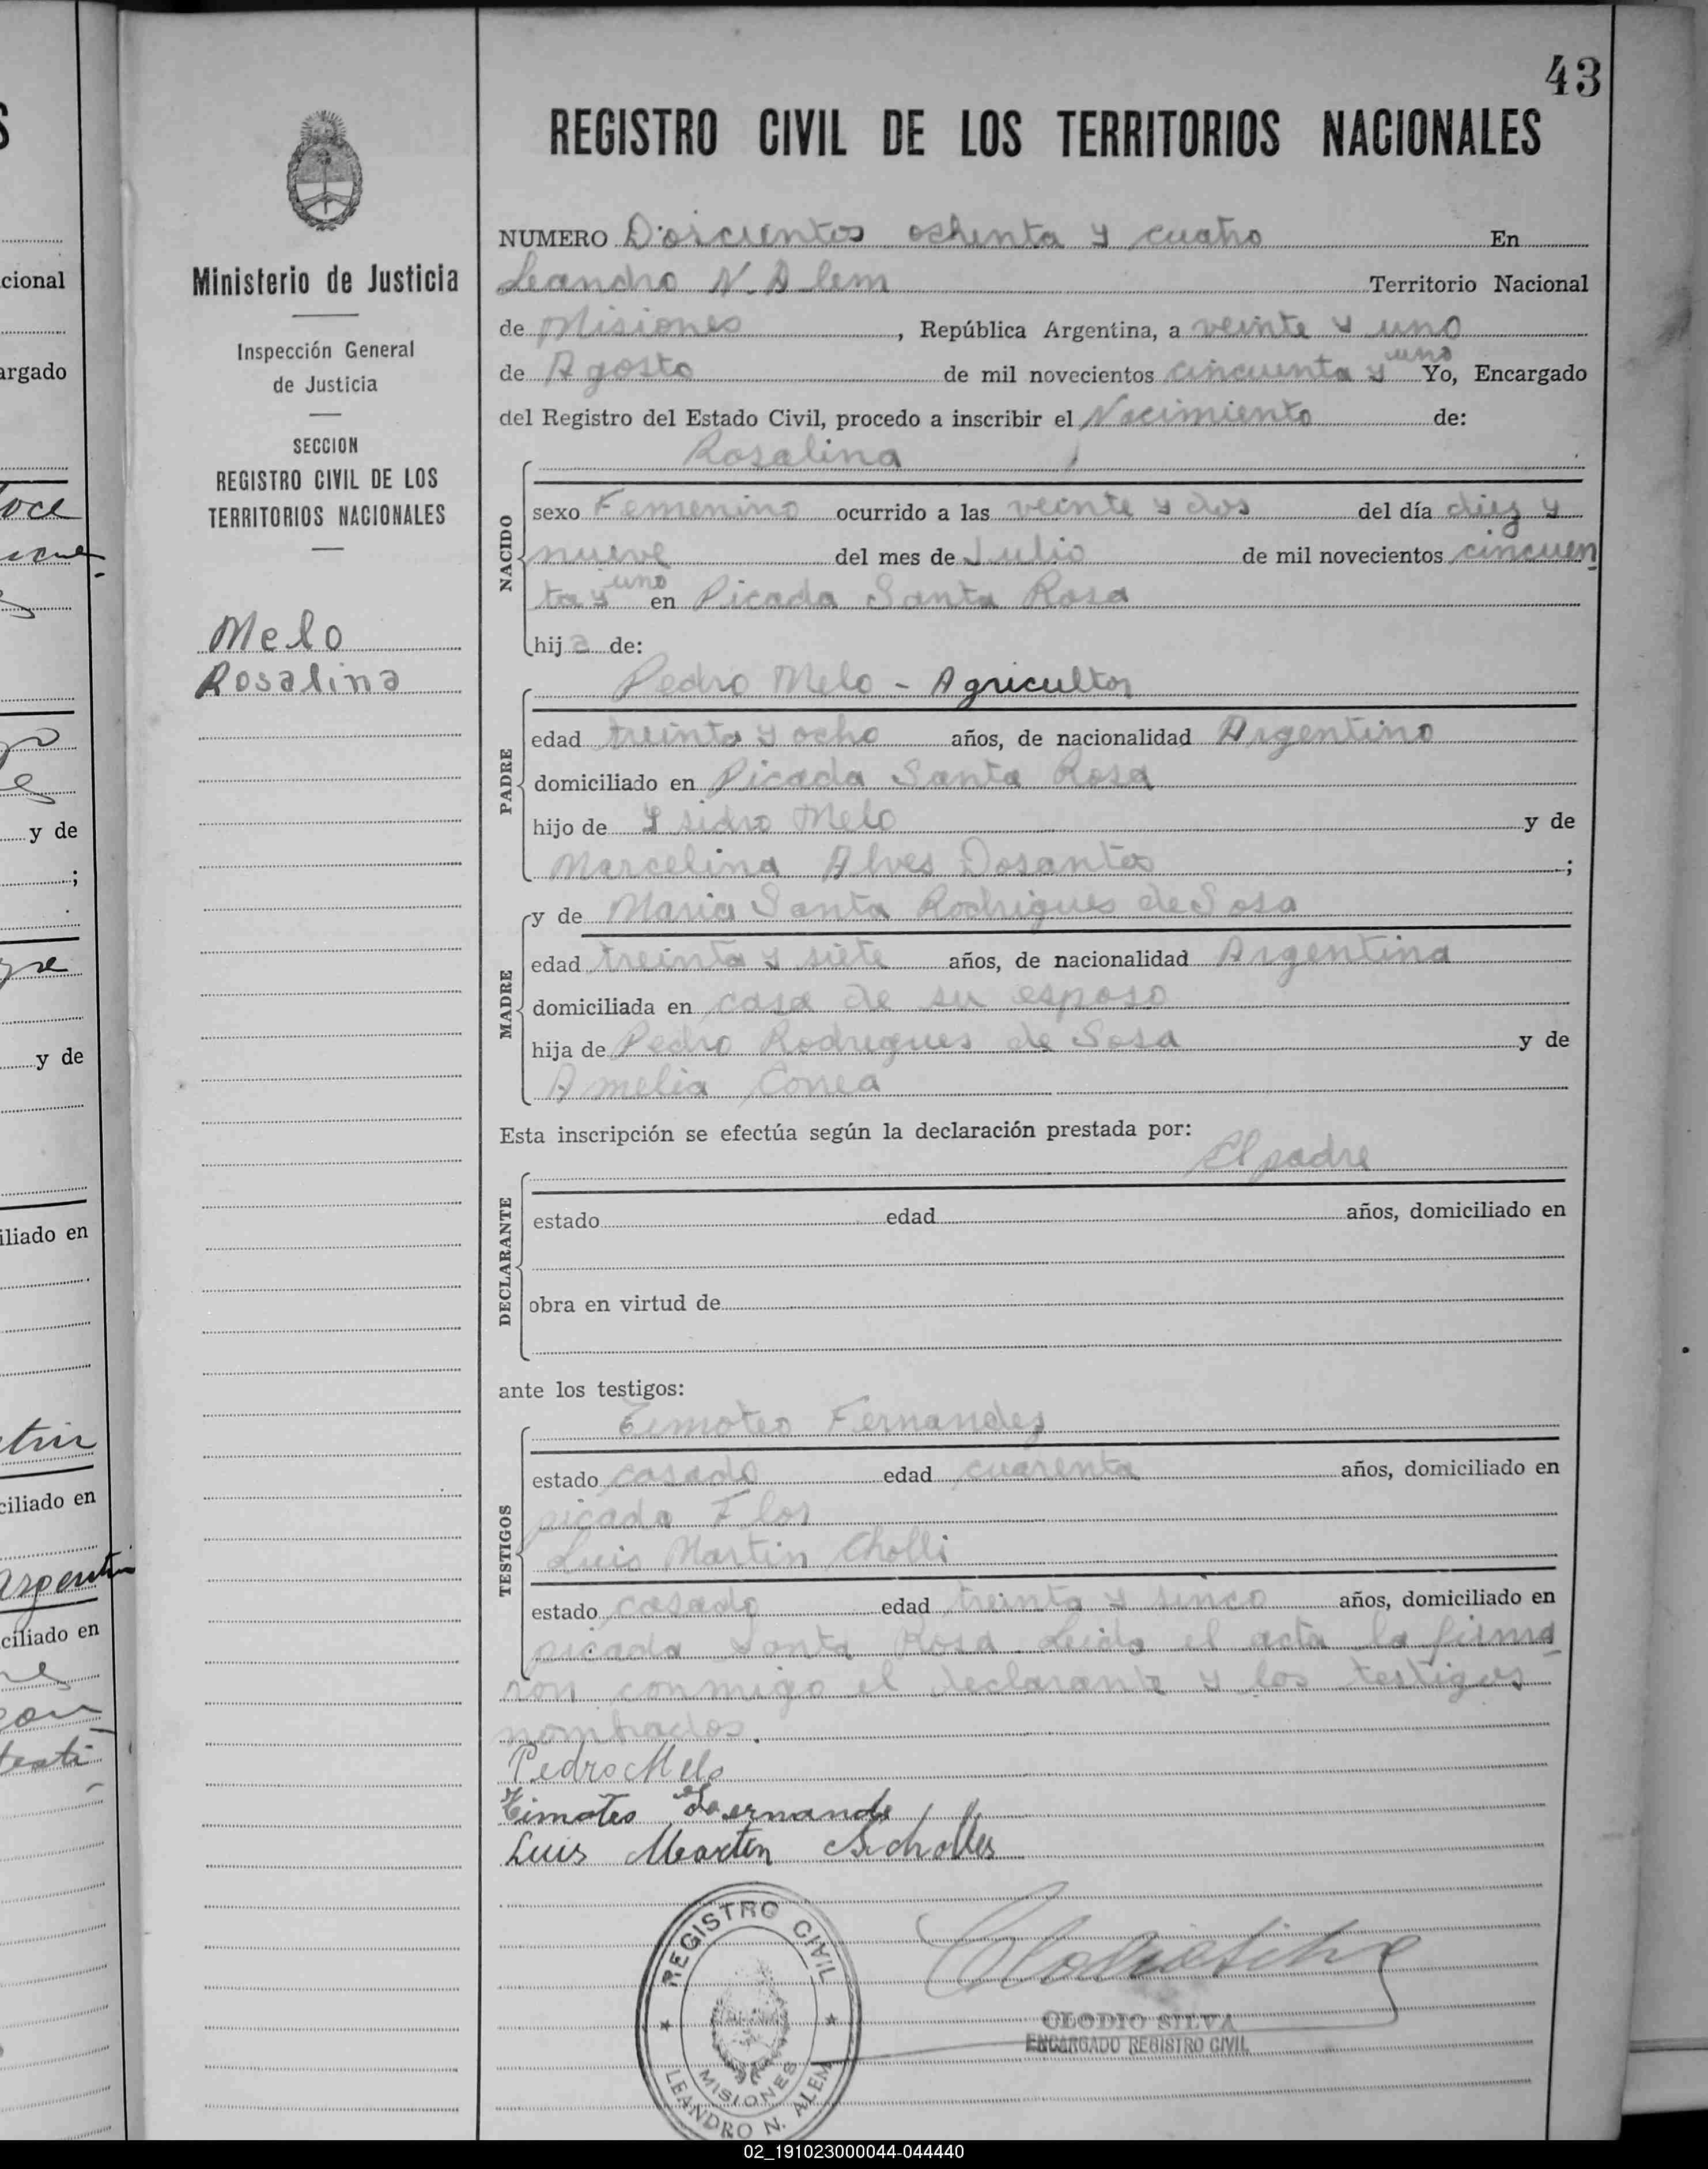 43
REGISTRO CIVIL DE LOS TERRITORIOS NACIONALES
Ministerio de Justicia
Inspección General
de Justicia
SECCION
REGISTRO CIVIL DE LOS
TERRITORIOS NACIONALES
Melo
Rosalina
NUMERO Doscientos ochenta y cuatro En
Leandro N. Alem Territorio Nacional
de Misiones, República Argentina, a veinte y uno
de Agosto de mil novecientos cincuenta y uno Yo, Encargado
del Registro del Estado Civil, procedo a inscribir el Nacimiento de:
Rosalina
NACIDO
sexo Femenino ocurrido a las veinte y dos del día diez y
nueve del mes de Julio de mil novecientos cincuen
ta y uno en Picada Santa Rosa
hija de:
Pedro Melo - Agricultor
PADRE
edad treinta y ocho años, de nacionalidad Argentino
domiciliado en Picada Santa Rosa
hijo de Ysidro Melo y de
Marcelina Alves Dosantos ;
y de Maria Santa Rodrigues de Sosa
MADRE
edad treinta y siete años, de nacionalidad Argentina
domiciliada en casa de su esposo
hija de Pedro Rodrigues de Sosa y de
Amelia Correa
Esta inscripción se efectúa según la declaración prestada por:
El padre
DECLARANTE
estado edad años, domiciliado en
obra en virtud de
ante los testigos:
Timoteo Fernandez
TESTIGOS
estado casado edad cuarenta años, domiciliado en
picada Flor
Luis Martin Cholli
estado casado edad treinta y sinco años, domiciliado en
picada Santa Rosa. Leida el acta la firma
ron conmigo el declarante y los testigos
nombrados.
Pedro Melo
Timoteo Fernande
Luis Martin Scholles
REGISTRO CIVIL
MISIONES
LEANDRO N. ALEM
CLODIO SILVA
ENCARGADO REGISTRO CIVIL
cional
argado
y de
;
y de
iliado en
ciliado en
ciliado en
02_191023000044-044440